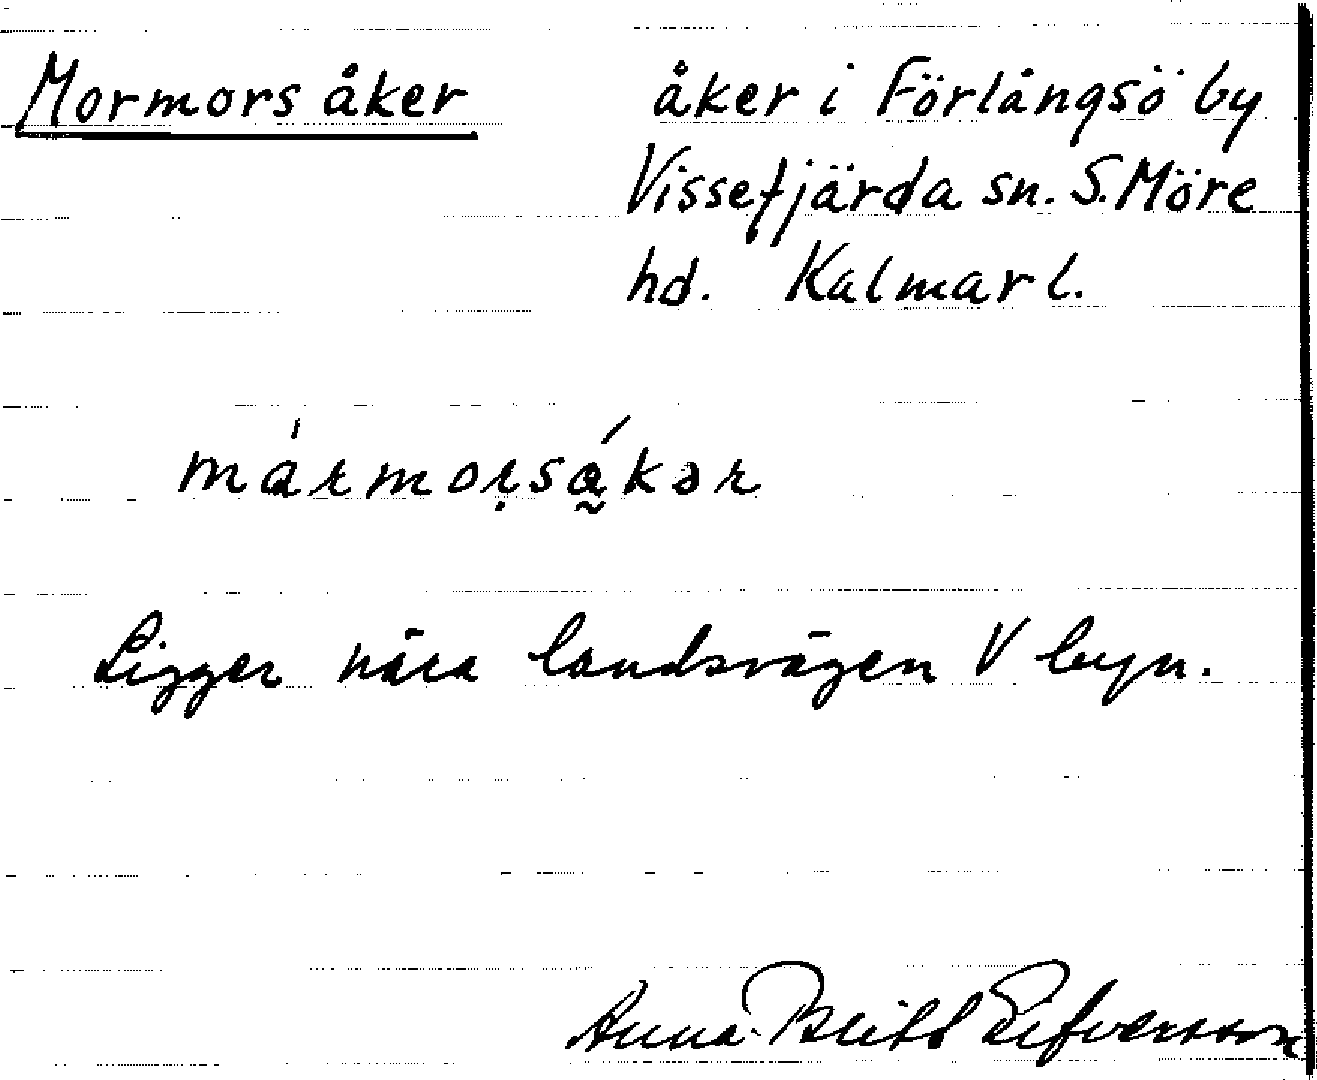 Mormors åker åker i Förlångsö by
Vissefjärda sn. S. Möre
hd. Kalmar l.
mármorṣá̰kər
Ligger nära landsvägen V byn.
Anna-Britt